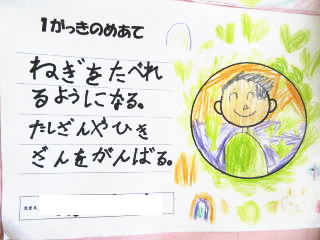 1がっきのめあて
ねぎをたべれ
るようになる。
たしざんやひき
ざんをがんばる。